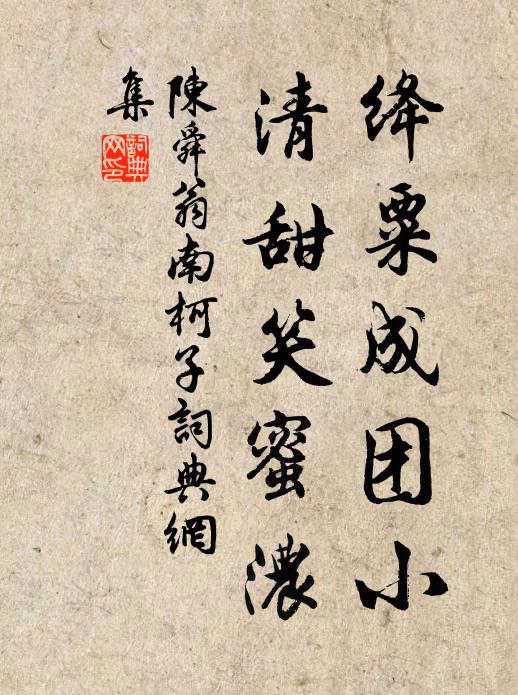 绛粟成团小
清甜笑蜜濃
陳舜翁南柯子詞典網
集
詞典网印